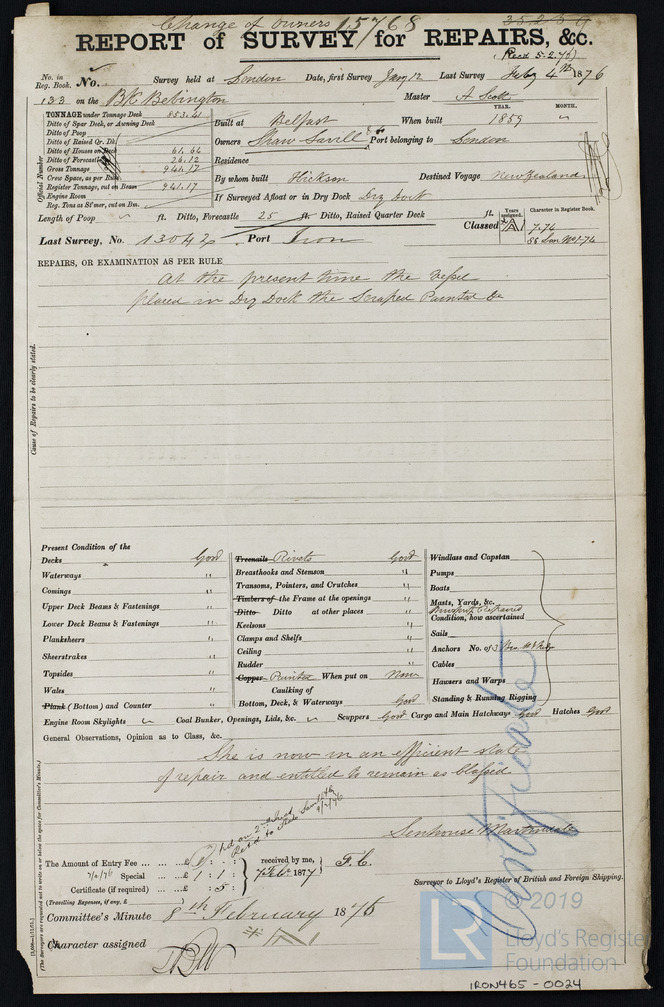 Change of Owners 15768 35250
REPORT of SURVEY for REPAIRS, &c.
(Recd 5.2.76)
No. in Reg. Book. No. Survey held at London Date, first Survey Jany 12 Last Survey Feby 4th 1876
133 on the BK Bebington Master A Scott
TONNAGE under Tonnage Deck 853.41
Ditto of Spar Deck, or Awning Deck
Ditto of Poop
Ditto of Raised Qr. Dk
Ditto of Houses on Deck 61.64
Ditto of Forecastle 26.12
Gross Tonnage 941.17
Crew Space, as per Rule
Register Tonnage, cut on Beam 941.17
Engine Room
Reg. Tons as St'mer, cut on Bm.
Official Number
Built at Belfast When built YEAR. 1859 MONTH.
Owners Shaw Savill & Co Port belonging to London
Residence
By whom built Hickson Destined Voyage New Zealand
If Surveyed Afloat or in Dry Dock Dry Dock
Length of Poop ft. Ditto, Forecastle 25 ft. Ditto, Raised Quarter Deck ft.
Classed Years assigned. A Character in Register Book. 7.74
Last Survey, No. 13042 Port Iron
REPAIRS, OR EXAMINATION AS PER RULE
At the present time the Vessel
placed in Dry Dock the Scraped Painted &c
Cause of Repairs to be clearly stated.
Present Condition of the
Decks Good
Waterways "
Comings "
Upper Deck Beams & Fastenings "
Lower Deck Beams & Fastenings "
Planksheers "
Sheerstrakes "
Topsides "
Wales "
Plank (Bottom) and Counter "
Treenails Rivets Good
Breasthooks and Stemson "
Transoms, Pointers, and Crutches "
Timbers of the Frame at the openings "
Ditto Ditto at other places "
Keelsons "
Clamps and Shelfs "
Ceiling "
Rudder "
Copper Painted When put on Now
Caulking of
Bottom, Deck, & Waterways Good
Windlass and Capstan
Pumps
Boats
Masts, Yards, &c.
Condition, how ascertained
Sails
Anchors No. of 3
Cables
Hawsers and Warps
Standing & Running Rigging
Engine Room Skylights Coal Bunker, Openings, Lids, &c. Scuppers Good Cargo and Main Hatchways Good Hatches Good
General Observations, Opinion as to Class, &c.
She is now in an efficient state
of repair and entitled to remain as Classed
Senhouse Martindale
Surveyor to Lloyd's Register of British and Foreign Shipping.
The Amount of Entry Fee ... ... ...£ : : received by me,
7/2/76 Special ... ...£ 1 : 1 : 7 Feb 1877 F.C.
Certificate (if required) ... ...£ : 5 :
(Travelling Expenses, if any, £
Committee's Minute 8th February 1876
Character assigned
(The Surveyors are requested not to write on or below the space for Committee's Minute.)
Certificate
© 2019
LR
Lloyd's Register
Foundation
IRON465-0024